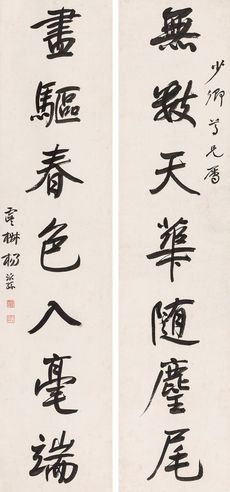 少卿尊兄屬
無數天華随麈尾
盡驅春色入毫端
楊